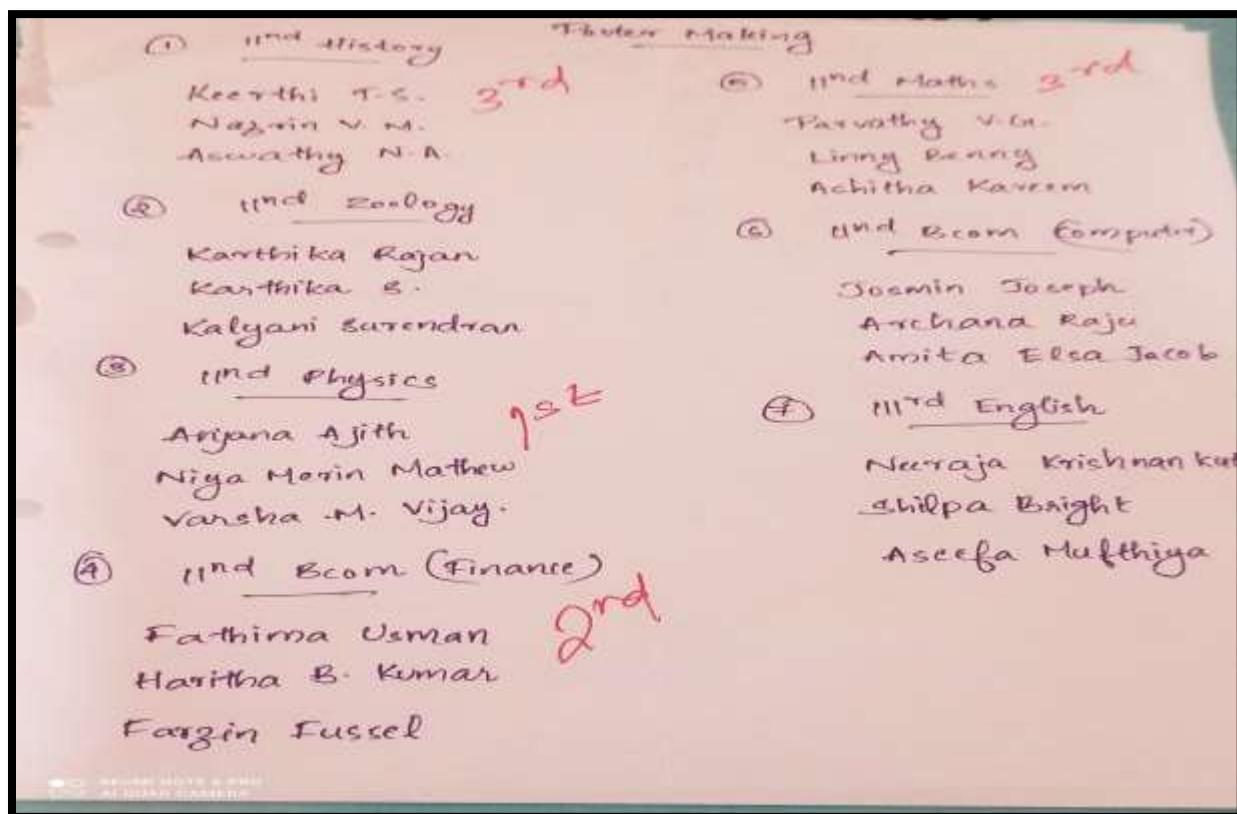 Poster Making
① IInd History
3rd
Keerthi T.S.
Nazrin V.M.
Aswathy N.A.
② IInd Zoology
Karthika Rajan
Karthika S.
Kalyani Surendran
③ IInd Physics
1st
Anjana Ajith
Niya Merin Mathew
Varsha M. Vijay.
④ IInd Bcom (Finance)
2nd
Fathima Usman
Haritha B. Kumar
Farzin Fussel
⑤ IInd Maths 3rd
Parvathy V.G.
Linny Benny
Achitha Kareem
⑥ IInd Bcom (Computer)
Josmin Joseph
Archana Raju
Amita Elsa Jacob
⑦ IIIrd English
Neeraja Krishnan kut
Shilpa Bright
Aseefa Mufthiya
AI QUAD CAMERA